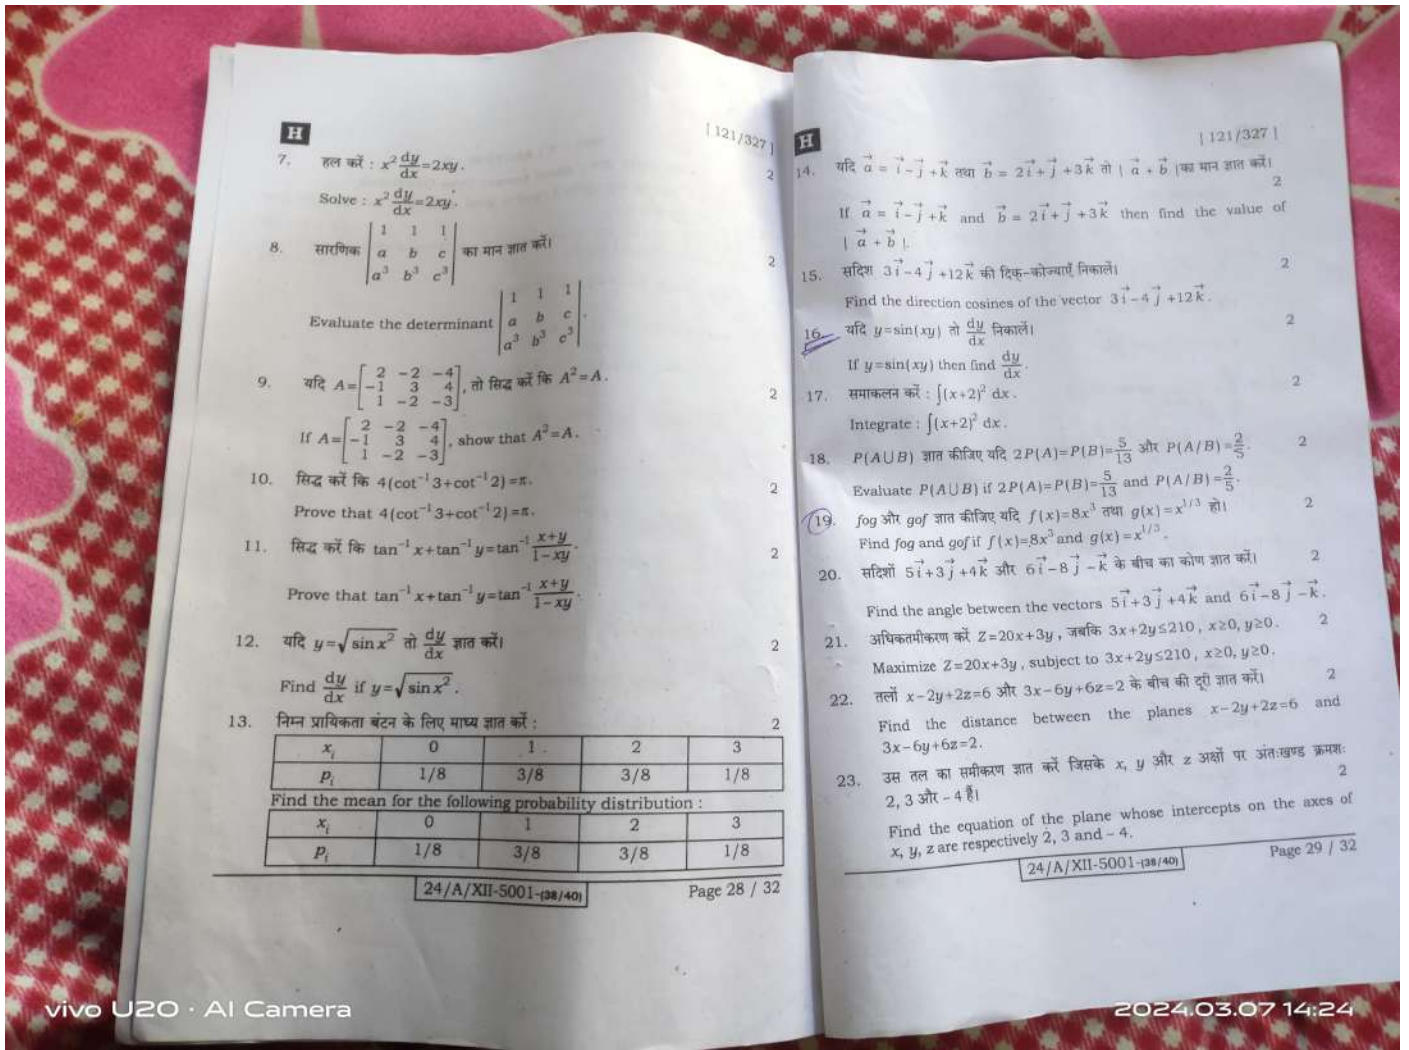 H
[ 121/327 ]
7. हल करें : x² dy/dx = 2xy. 2
Solve : x² dy/dx = 2xy.
8. सारणिक | 1 1 1 | का मान ज्ञात करें। 2
| a b c |
| a³ b³ c³ |
Evaluate the determinant | 1 1 1 | .
| a b c |
| a³ b³ c³ |
9. यदि A = [ 2 −2 −4 ] , तो सिद्ध करें कि A² = A. 2
[ −1 3 4 ]
[ 1 −2 −3 ]
If A = [ 2 −2 −4 ] , show that A² = A.
[ −1 3 4 ]
[ 1 −2 −3 ]
10. सिद्ध करें कि 4(cot⁻¹ 3 + cot⁻¹ 2) = π. 2
Prove that 4(cot⁻¹ 3 + cot⁻¹ 2) = π.
11. सिद्ध करें कि tan⁻¹ x + tan⁻¹ y = tan⁻¹ (x+y)/(1−xy). 2
Prove that tan⁻¹ x + tan⁻¹ y = tan⁻¹ (x+y)/(1−xy).
12. यदि y = √(sin x²) तो dy/dx ज्ञात करें। 2
Find dy/dx if y = √(sin x²).
13. निम्न प्रायिकता बंटन के लिए माध्य ज्ञात करें : 2
xᵢ 0 1 2 3
pᵢ 1/8 3/8 3/8 1/8
Find the mean for the following probability distribution :
xᵢ 0 1 2 3
Pᵢ 1/8 3/8 3/8 1/8
24/A/XII-5001-(38/40) Page 28 / 32
H
[ 121/327 ]
14. यदि a⃗ = i⃗ − j⃗ + k⃗ तथा b⃗ = 2i⃗ + j⃗ + 3k⃗ तो | a⃗ + b⃗ | का मान ज्ञात करें।
2
If a⃗ = i⃗ − j⃗ + k⃗ and b⃗ = 2i⃗ + j⃗ + 3k⃗ then find the value of
| a⃗ + b⃗ |.
15. सदिश 3i⃗ − 4j⃗ + 12k⃗ की दिक्-कोज्याएँ निकालें। 2
Find the direction cosines of the vector 3i⃗ − 4j⃗ + 12k⃗.
16. यदि y = sin(xy) तो dy/dx निकालें। 2
If y = sin(xy) then find dy/dx.
17. समाकलन करें : ∫(x+2)² dx. 2
Integrate : ∫(x+2)² dx.
18. P(A∪B) ज्ञात कीजिए यदि 2P(A) = P(B) = 5/13 और P(A/B) = 2/5. 2
Evaluate P(A∪B) if 2P(A) = P(B) = 5/13 and P(A/B) = 2/5.
19. fog और gof ज्ञात कीजिए यदि f(x) = 8x³ तथा g(x) = x^1/3 हो। 2
Find fog and gof if f(x) = 8x³ and g(x) = x^1/3.
20. सदिशों 5i⃗ + 3j⃗ + 4k⃗ और 6i⃗ − 8j⃗ − k⃗ के बीच का कोण ज्ञात करें। 2
Find the angle between the vectors 5i⃗ + 3j⃗ + 4k⃗ and 6i⃗ − 8j⃗ − k⃗.
21. अधिकतमीकरण करें Z=20x+3y, जबकि 3x+2y≤210, x≥0, y≥0. 2
Maximize Z=20x+3y, subject to 3x+2y≤210, x≥0, y≥0.
22. तलों x−2y+2z=6 और 3x−6y+6z=2 के बीच की दूरी ज्ञात करें। 2
Find the distance between the planes x−2y+2z=6 and
3x−6y+6z=2.
23. उस तल का समीकरण ज्ञात करें जिसके x, y और z अक्षों पर अंतःखण्ड क्रमशः
2, 3 और − 4 हैं। 2
Find the equation of the plane whose intercepts on the axes of
x, y, z are respectively 2, 3 and − 4.
24/A/XII-5001-(38/40) Page 29 / 32
vivo U20 · AI Camera
2024.03.07 14:24